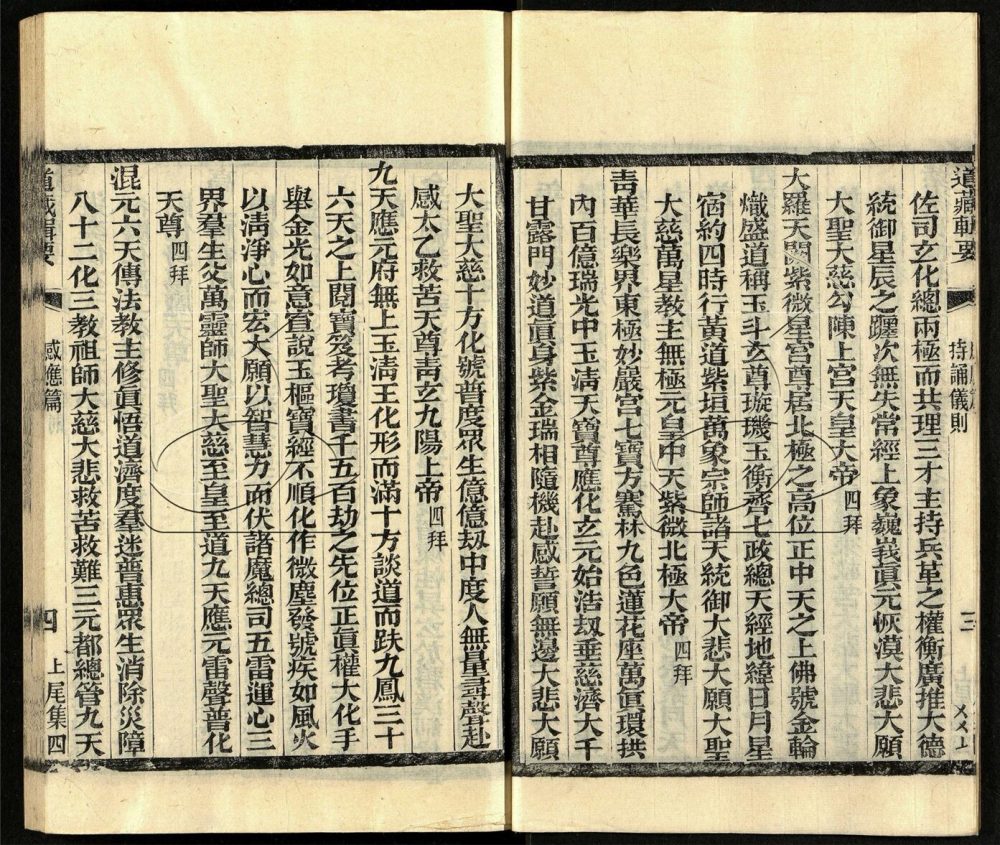 道藏輯要
持誦儀則
三
佐司玄化總兩極而共理三才主持兵革之權衡廣推大德
統御星辰之躔次無失常經上象巍峩眞元恢漠大悲大願
大聖大慈勾陳上宮天皇大帝四拜
大羅天闕紫微星宮尊居北極之高位正中天之上佛號金輪
熾盛道稱玉斗玄尊璇璣玉衡齊七政總天經地緯日月星
宿約四時行黃道紫垣萬象宗師諸天統御大悲大願大聖
大慈萬星教主無極元皇中天紫微北極大帝四拜
青華長樂界東極妙嚴宮七寶方騫林九色蓮花座萬眞環拱
內百億瑞光中玉淸天寶尊應化玄元始浩刼垂慈濟大千
甘露門妙道眞身紫金瑞相隨機赴感誓願無邊大悲大願
大聖大慈十方化號普度眾生億億刼中度人無量尋聲赴
感太乙救苦天尊靑玄九陽上帝四拜
九天應元府無上玉淸王化形而滿十方談道而趺九鳳三十
六天之上閱寶笈考瓊書千五百劫之先位正眞權大化手
舉金光如意宣說玉樞寶經不順化作微塵發號疾如風火
以淸凈心而宏大願以智慧力而伏諸魔總司五雷運心三
界羣生父萬靈師大聖大慈至皇至道九天應元雷聲普化
天尊四拜
混元六天傳法教主修眞悟道濟度羣迷普惠眾生消除災障
八十二化三教祖師大慈大悲救苦救難三元都總管九天
道藏輯要
感應篇
四
上尾集四